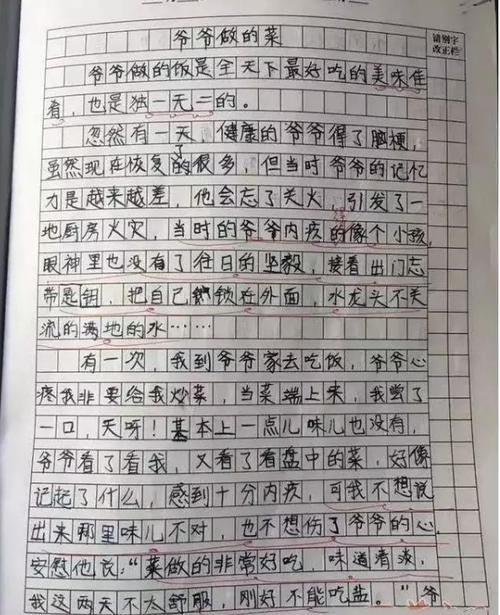 请别字
改正栏
爷爷做的菜
爷爷做的饭是全天下最好吃的美味佳
肴，也是独一无二的。
忽然有一天，健康的爷爷得了脑梗，
虽然现在恢复了的很多，但当时爷爷的记忆
力是越来越差，他会忘了关火，引发了一
地厨房火灾，当时的爷爷内疚的像个小孩，
眼神里也没有了往日的坚毅，接着出门忘
带匙钥，把自己锁在外面，水龙头不关
流的满地的水……
有一次，我到爷爷家去吃饭，爷爷心
疼我非要给我炒菜，当菜端上来，我尝了
一口，天呀！基本上一点儿味儿也没有，
爷爷看了看我，又看了看盘中的菜，好像
记起了什么，感到十分内疚，可我不想说
出来那里味儿不对，也不想伤了爷爷的心，
安慰他说：“菜做的非常好吃，味道看淡，
我这两天不太舒服，刚好不能吃盐。”爷